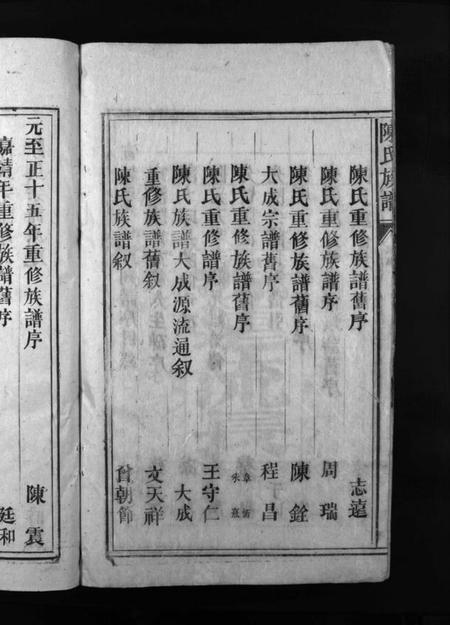 陳氏族譜
陳氏重修族譜舊序 志遠
陳氏重修族譜序 周瑞
陳氏重修族譜舊序 陳銓
大成宗譜舊序 程昌
陳氏重修族譜舊序
陳氏重修譜序 王守仁
陳氏族譜大成源流通叙 大成
重修族譜舊叙 文天祥
陳氏族譜叙 曾朝節
元至正十五年重修族譜序 陳雲
嘉靖年重修族譜舊序 廷和